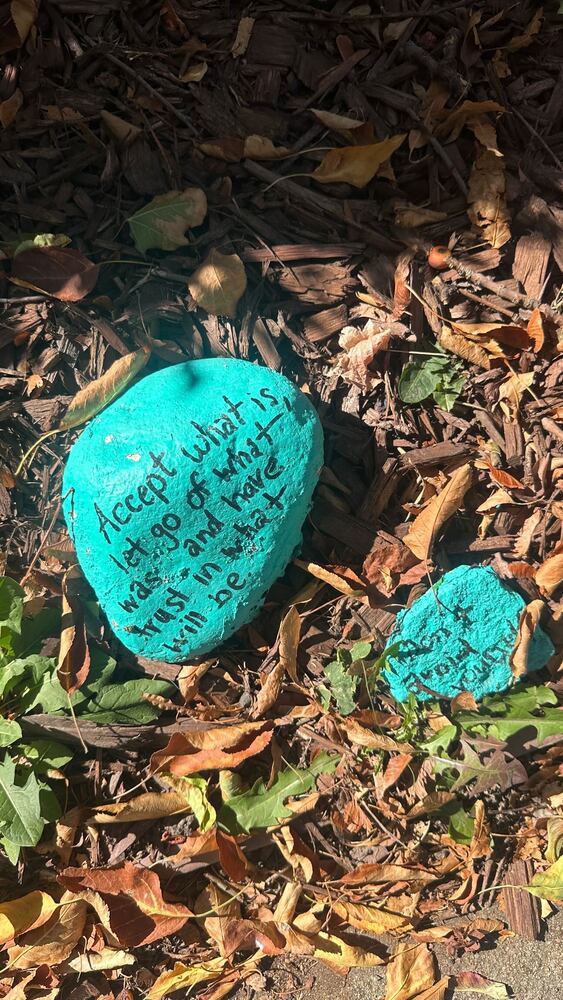 Accept what is,
let go of what
was.. and have
trust in what
will be.
Don't